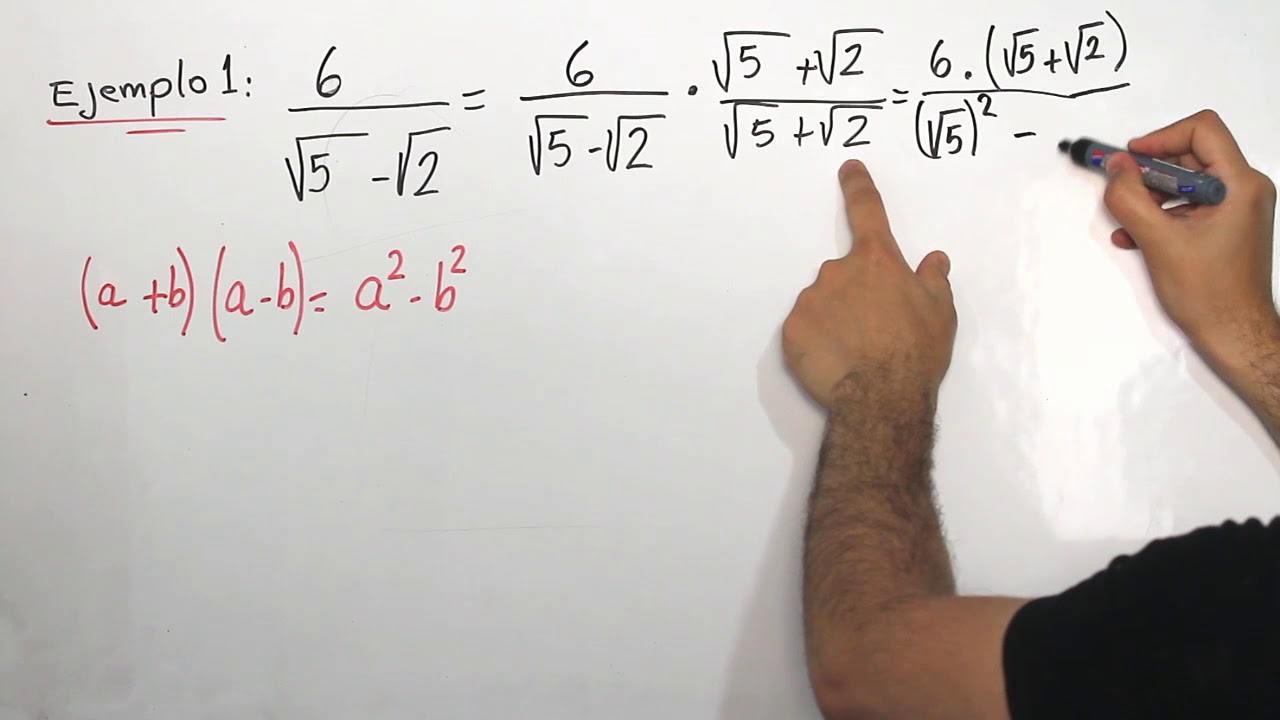 Ejemplo 1: 6/(√5 -√2) = 6/(√5 -√2) · (√5 +√2)/(√5 +√2) = 6.(√5+√2)/(√5)² -
(a +b)(a-b)= a² - b²